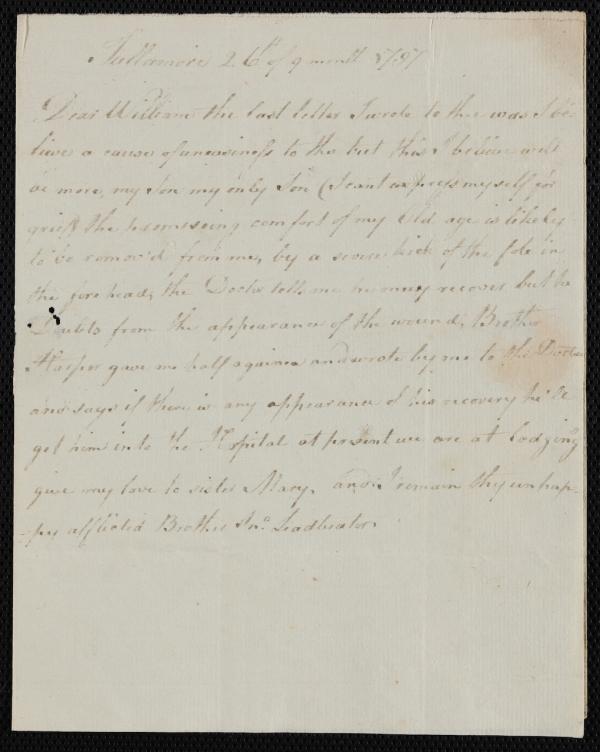 Tullamore 26th of 9 month 1787
Dear William the last letter I wrote to thee was I be
lieve a cause of uneasiness to thee but this I believe will
be more, my Son my only Son (I cant express myself for
grief) the promiseing comfort of my Old age is likely
to be remov'd from me, by a severe kick of the fole in
the fore head, the Doctor tells me he may recover but he
Doubts from the appearance of the wound, Brother
Harper gave me half a guinea and wrote by me to the Doctor
and says if there is any appearance of his recovery he'll
get him into the Hospital at present we are at Lodging
give my love to sister Mary, and I remain thy unhap-
-py afflicted Brother Jno. Leadbeater.